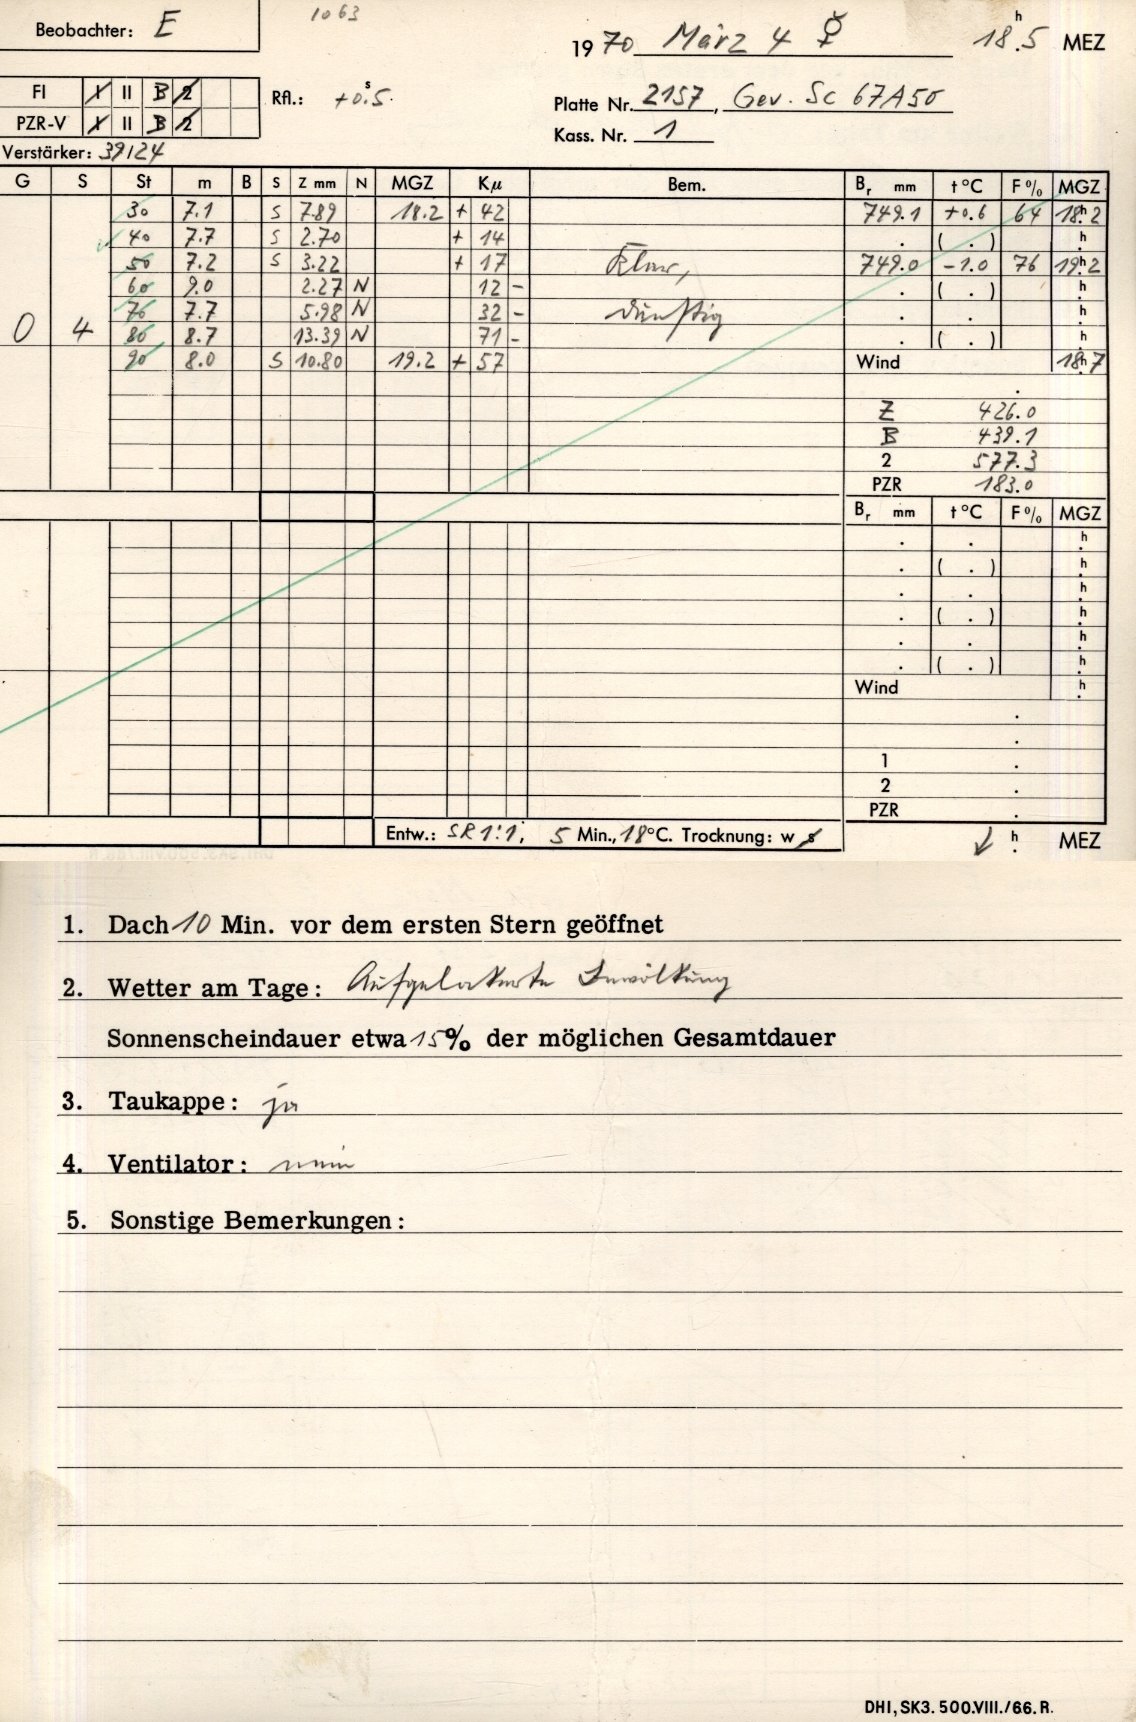 1063
Beobachter: E
1970 März 4 ☿ 18.5 h MEZ
FI 1 II B 2
Rfl.: +0.5 s
PZR-V 1 II B 2
Platte Nr. 2157, Gev. Sc 67A50
Kass. Nr. 1
Verstärker: 39124
G S St m B S Z mm N MGZ Kμ Bem. Br mm t °C F % MGZ
30 7.1 S 7.89 18.2 + 42 749.1 +0.6 64 18h.2
40 7.7 S 2.70 + 14 . ( . ) h.
50 7.2 S 3.22 + 17 Klar, 749.0 -1.0 76 19h.2
60 9.0 2.27 N 12 - . ( . ) h.
0 4 70 7.7 5.98 N 32 - dunstig . . h.
80 8.7 13.39 N 71 - . ( . ) h.
90 8.0 S 10.80 19.2 + 57 Wind 18h.7
.
Z 426.0
B 439.1
2 577.3
PZR 183.0
Br mm t °C F % MGZ
. . h.
. ( . ) h.
. . h.
. ( . ) h.
. . h.
. ( . ) h.
Wind h.
.
.
1 .
2 .
PZR .
Entw.: SR 1:1, 5 Min., 18°C. Trocknung: w s h. MEZ
1. Dach 10 Min. vor dem ersten Stern geöffnet
2. Wetter am Tage: Aufgelockerte Bewölkung
Sonnenscheindauer etwa 15% der möglichen Gesamtdauer
3. Taukappe: ja
4. Ventilator: nein
5. Sonstige Bemerkungen:
DHI, SK3. 500.VIII./66. R.